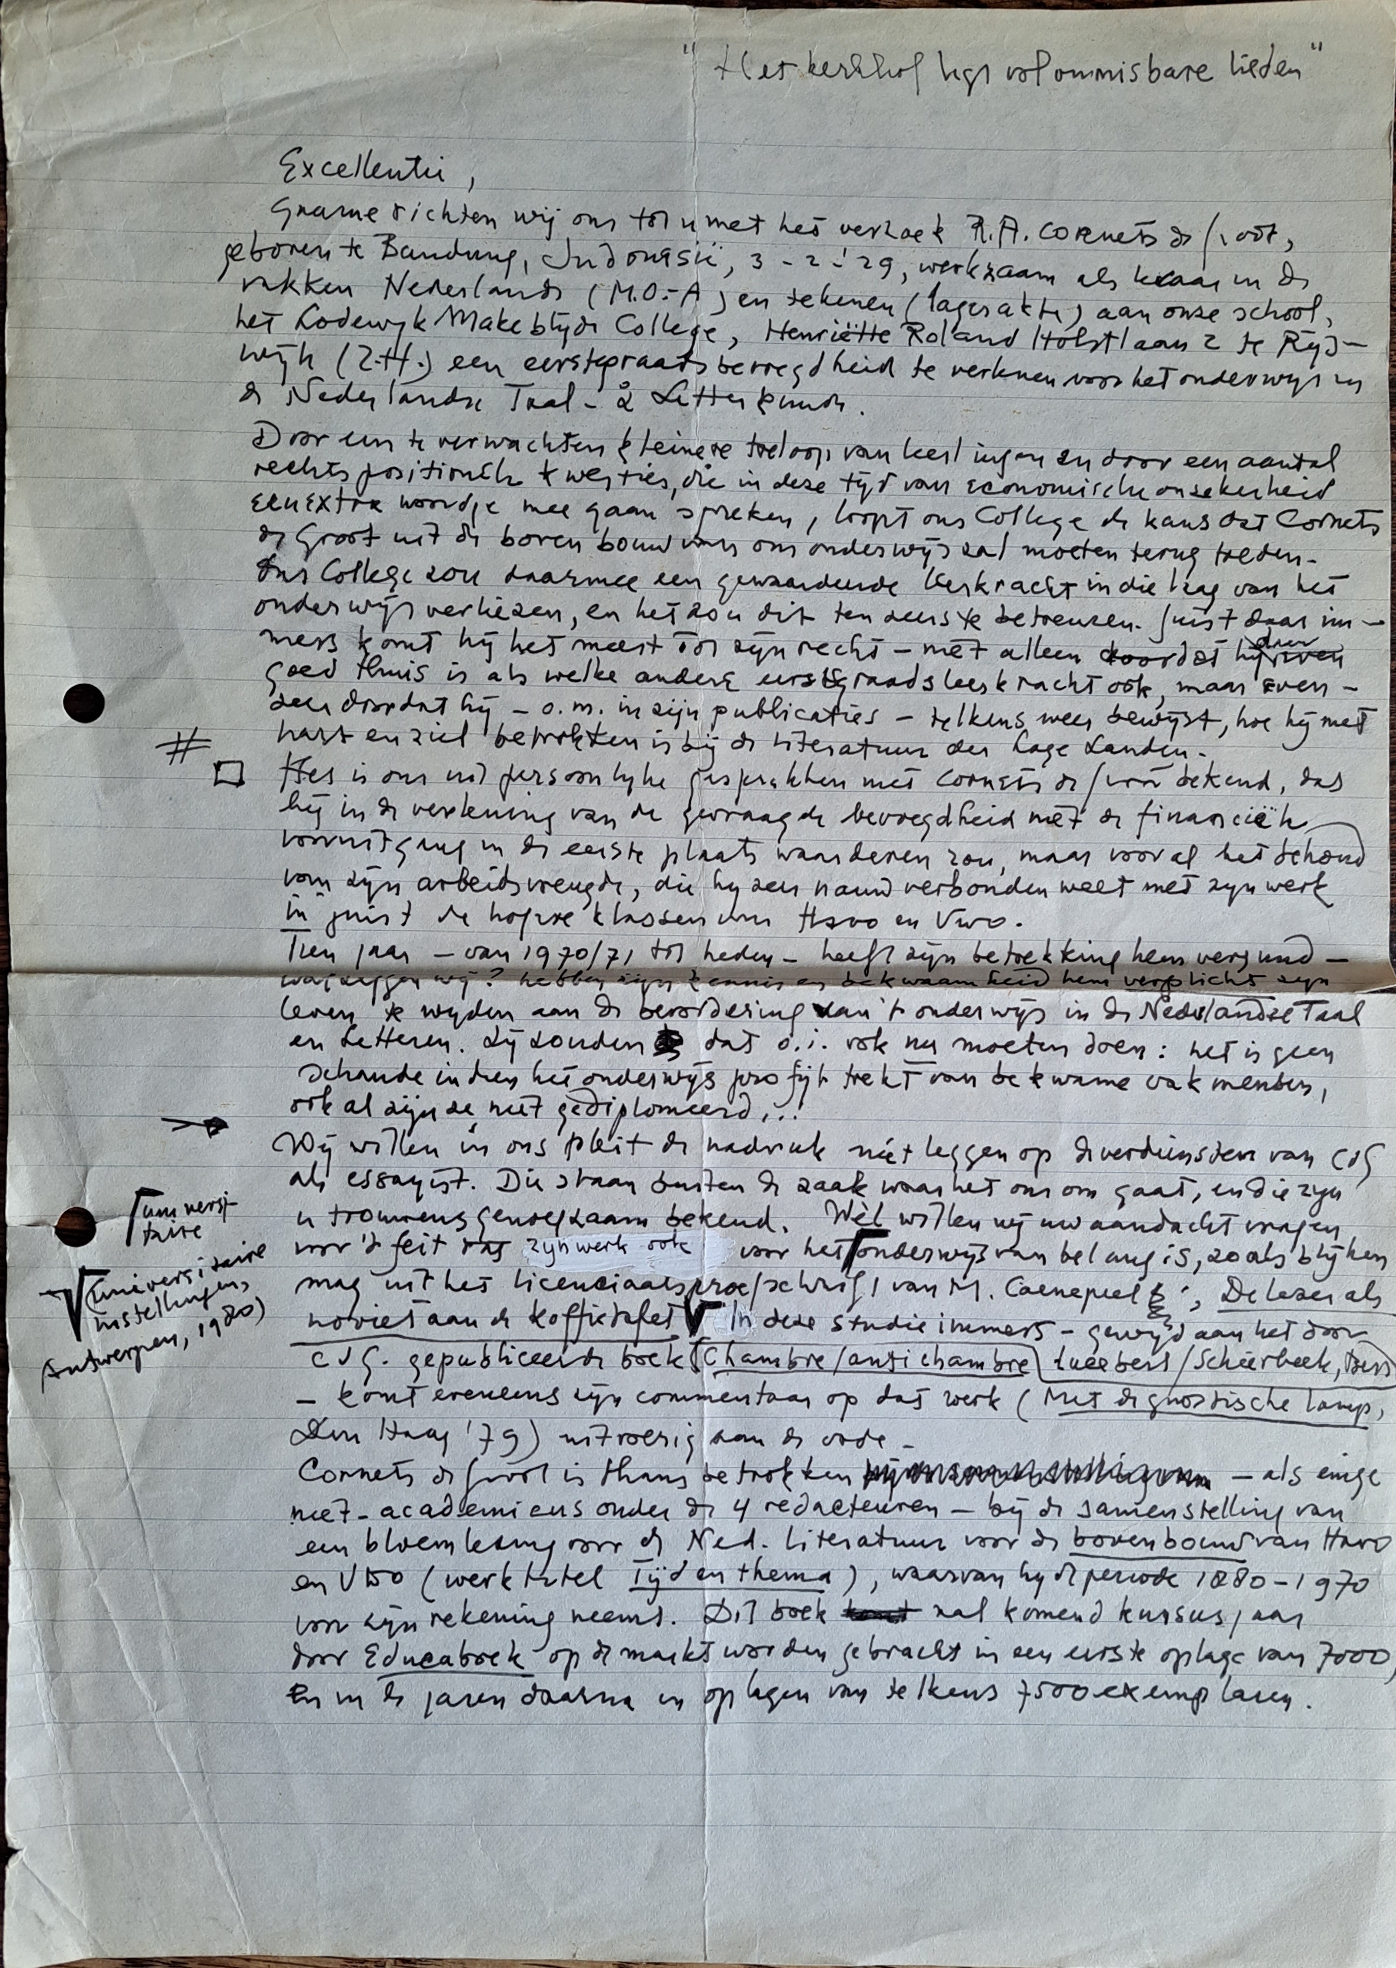 "Het kerkhof ligt vol onmisbare lieden"
Excellentie,
Gaarne richten wij ons tot u met het verzoek R.A. Cornets de Groot,
geboren te Bandung, Indonesië, 3-2-'29, werkzaam als leraar in de
vakken Nederlands (M.O.-A) en tekenen (lagere akte) aan onze school,
het Lodewyk Makeblijde College, Henriëtte Roland Holstlaan 2 te Rijs-
wijk (Z.H.) een eerstegraadsbevoegdheid te verlenen voor het onderwijs in
de Nederlandse Taal- & Letterkunde.
Door een te verwachten kleinere toeloop van leerlingen en door een aantal
rechtspositionele kwesties, die in deze tijd van economische onzekerheid
een extra woordje mee gaan spreken, loopt ons College de kans dat Cornets
de Groot uit de bovenbouw van ons onderwijs zal moeten terugtreden.
Ons College zou daarmee een gewaardeerde leerkracht in die laag van het
onderwijs verliezen, en het zou dit ten zeerste betreuren. Juist daar im-
mers komt hij het meest tot zijn recht – niet alleen doordat hij daar even
goed thuis is als welke andere eerstegraadsleerkracht ook, maar even-
zeer doordat hij – o.m. in zijn publicaties – telkens weer bewijst, hoe hij met
hart en ziel betrokken is bij de literatuur der Lage Landen.
#
□ Het is ons uit persoonlijke gesprekken met Cornets de Groot bekend, dat
hij in de verlening van de gevraagde bevoegdheid niet de financiële
vooruitgang in de eerste plaats waarderen zou, maar vooral het behoud
van zijn arbeidsvreugde, die hij zeer nauw verbonden weet met zijn werk
in juist de hogere klassen van Havo en Vwo.
Tien jaar – van 1970/71 tot heden – heeft zijn betrekking hem vergund –
wat zeggen wij? hebben zijn kennis en bekwaamheid hem verplicht zijn
leven te wijden aan de bevordering van 't onderwijs in de Nederlandse Taal
en Letteren. Zij zouden dat o.i. ook nu moeten doen: het is geen
schande indien het onderwijs profijt trekt van bekwame vakmensen,
ook al zijn ze niet gediplomeerd...
→
Wij willen in ons pleit de nadruk niet leggen op de verdiensten van CdG
als essayist. Die staan buiten de zaak waar het ons om gaat, en die zijn
u trouwens genoegzaam bekend. Wèl willen wij uw aandacht vragen
voor 't feit dat zijn werk ook voor het ⌈onderwijs van belang is, zoals blijken
⌈universi-
taire
mag uit het licenciaatsproefschrift van M. Caenepeel, De lezer als
noviet aan de koffietafel √ In deze studie immers – gewijd aan het door
√(Universitaire
instellingen,
Antwerpen, 1980)
CdG. gepubliceerde boek (Chambre/antichambre Lucebert/Schierbeek,
– komt eveneens zijn commentaar op dat werk (Met de gnostische lamp,
Den Haag '79) uitvoerig aan de orde –
Cornets de Groot is thans betrokken – als enige
niet-academicus onder de 4 redacteuren – bij de samenstelling van
een bloemlezing voor de Ned. literatuur voor de bovenbouw van Havo
en Vwo (werktitel Tijd en thema), waarvan hij de periode 1880-1970
voor zijn rekening neemt. Dit boek zal komend kursusjaar
door Educaboek op de markt worden gebracht in een eerste oplage van 7000,
en in de jaren daarna in oplagen van telkens 7500 exemplaren.